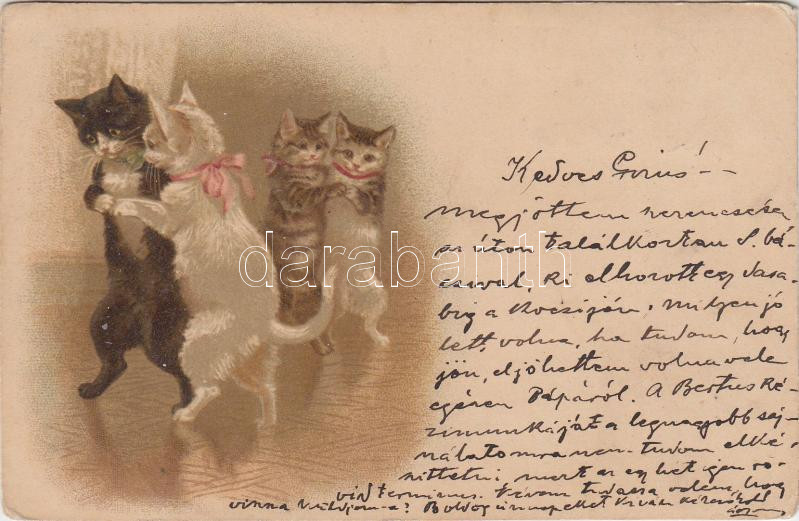 Kedves
megjöttem szerencsésen
az úton találkoztam S. bá-
csival, ki elhozott egy dasa-
big a kocsiján, milyen jó
lett volna, ha tudom, hogy
jön, eljöhettem volna vele
egészen Pápáról. A Bertus ké-
zimunkáját a legnagyobb saj-
nálatomra nem tudom elké-
szíttetni mert az egy hét igen rö-
vid terminus. Kívánt tudasd velem, hogy
vissza küldjem-e? Boldog ünnepeket kíván
darabanth